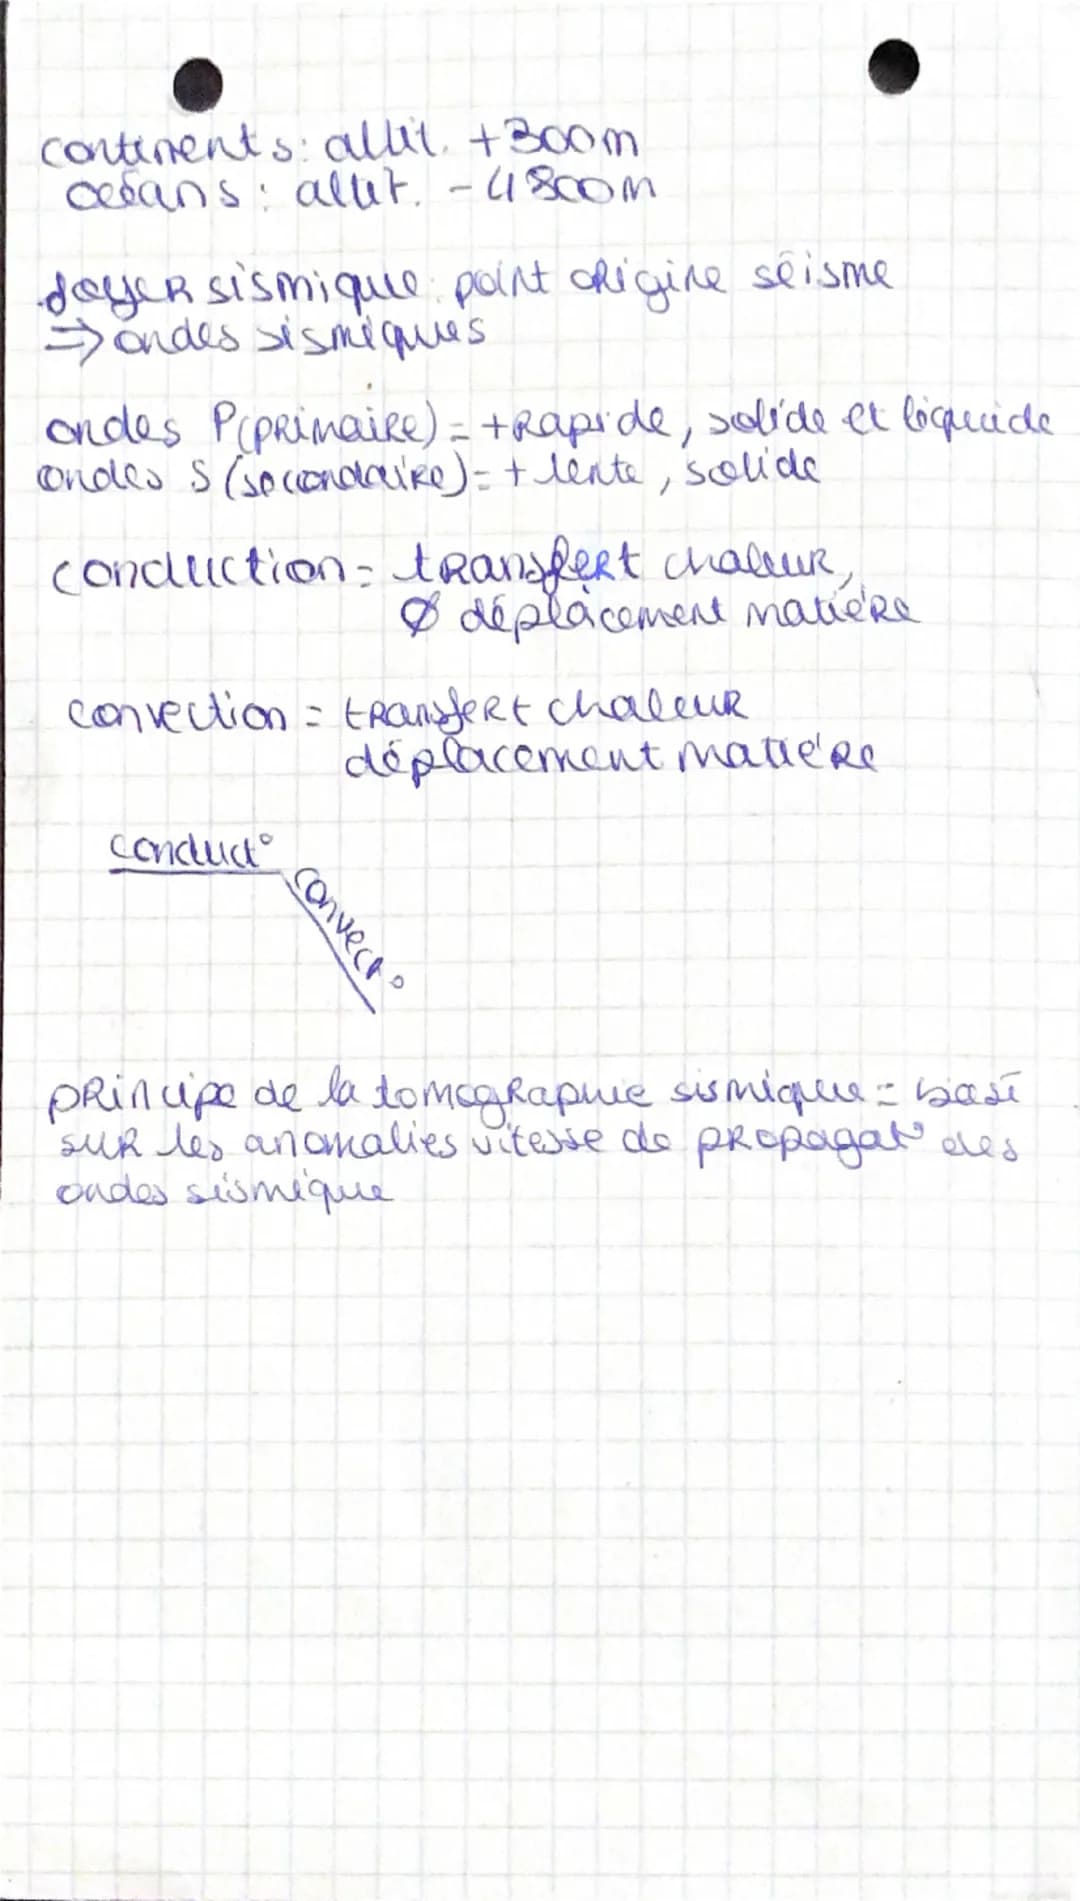 continents: altit. +300m
océans: altit. -4800m
foyer sismique: point origine séisme
=> ondes sismiques
ondes P(primaire)= +rapide, solide et liquide
ondes S (secondaire)= + lente, solide
conduction= transfert chaleur,
Ø déplacement matière
convection = transfert chaleur
déplacement matière
conduct°
convect°
principe de la tomographie sismique = basé
sur les anomalies vitesse de propagat° des
ondes sismique